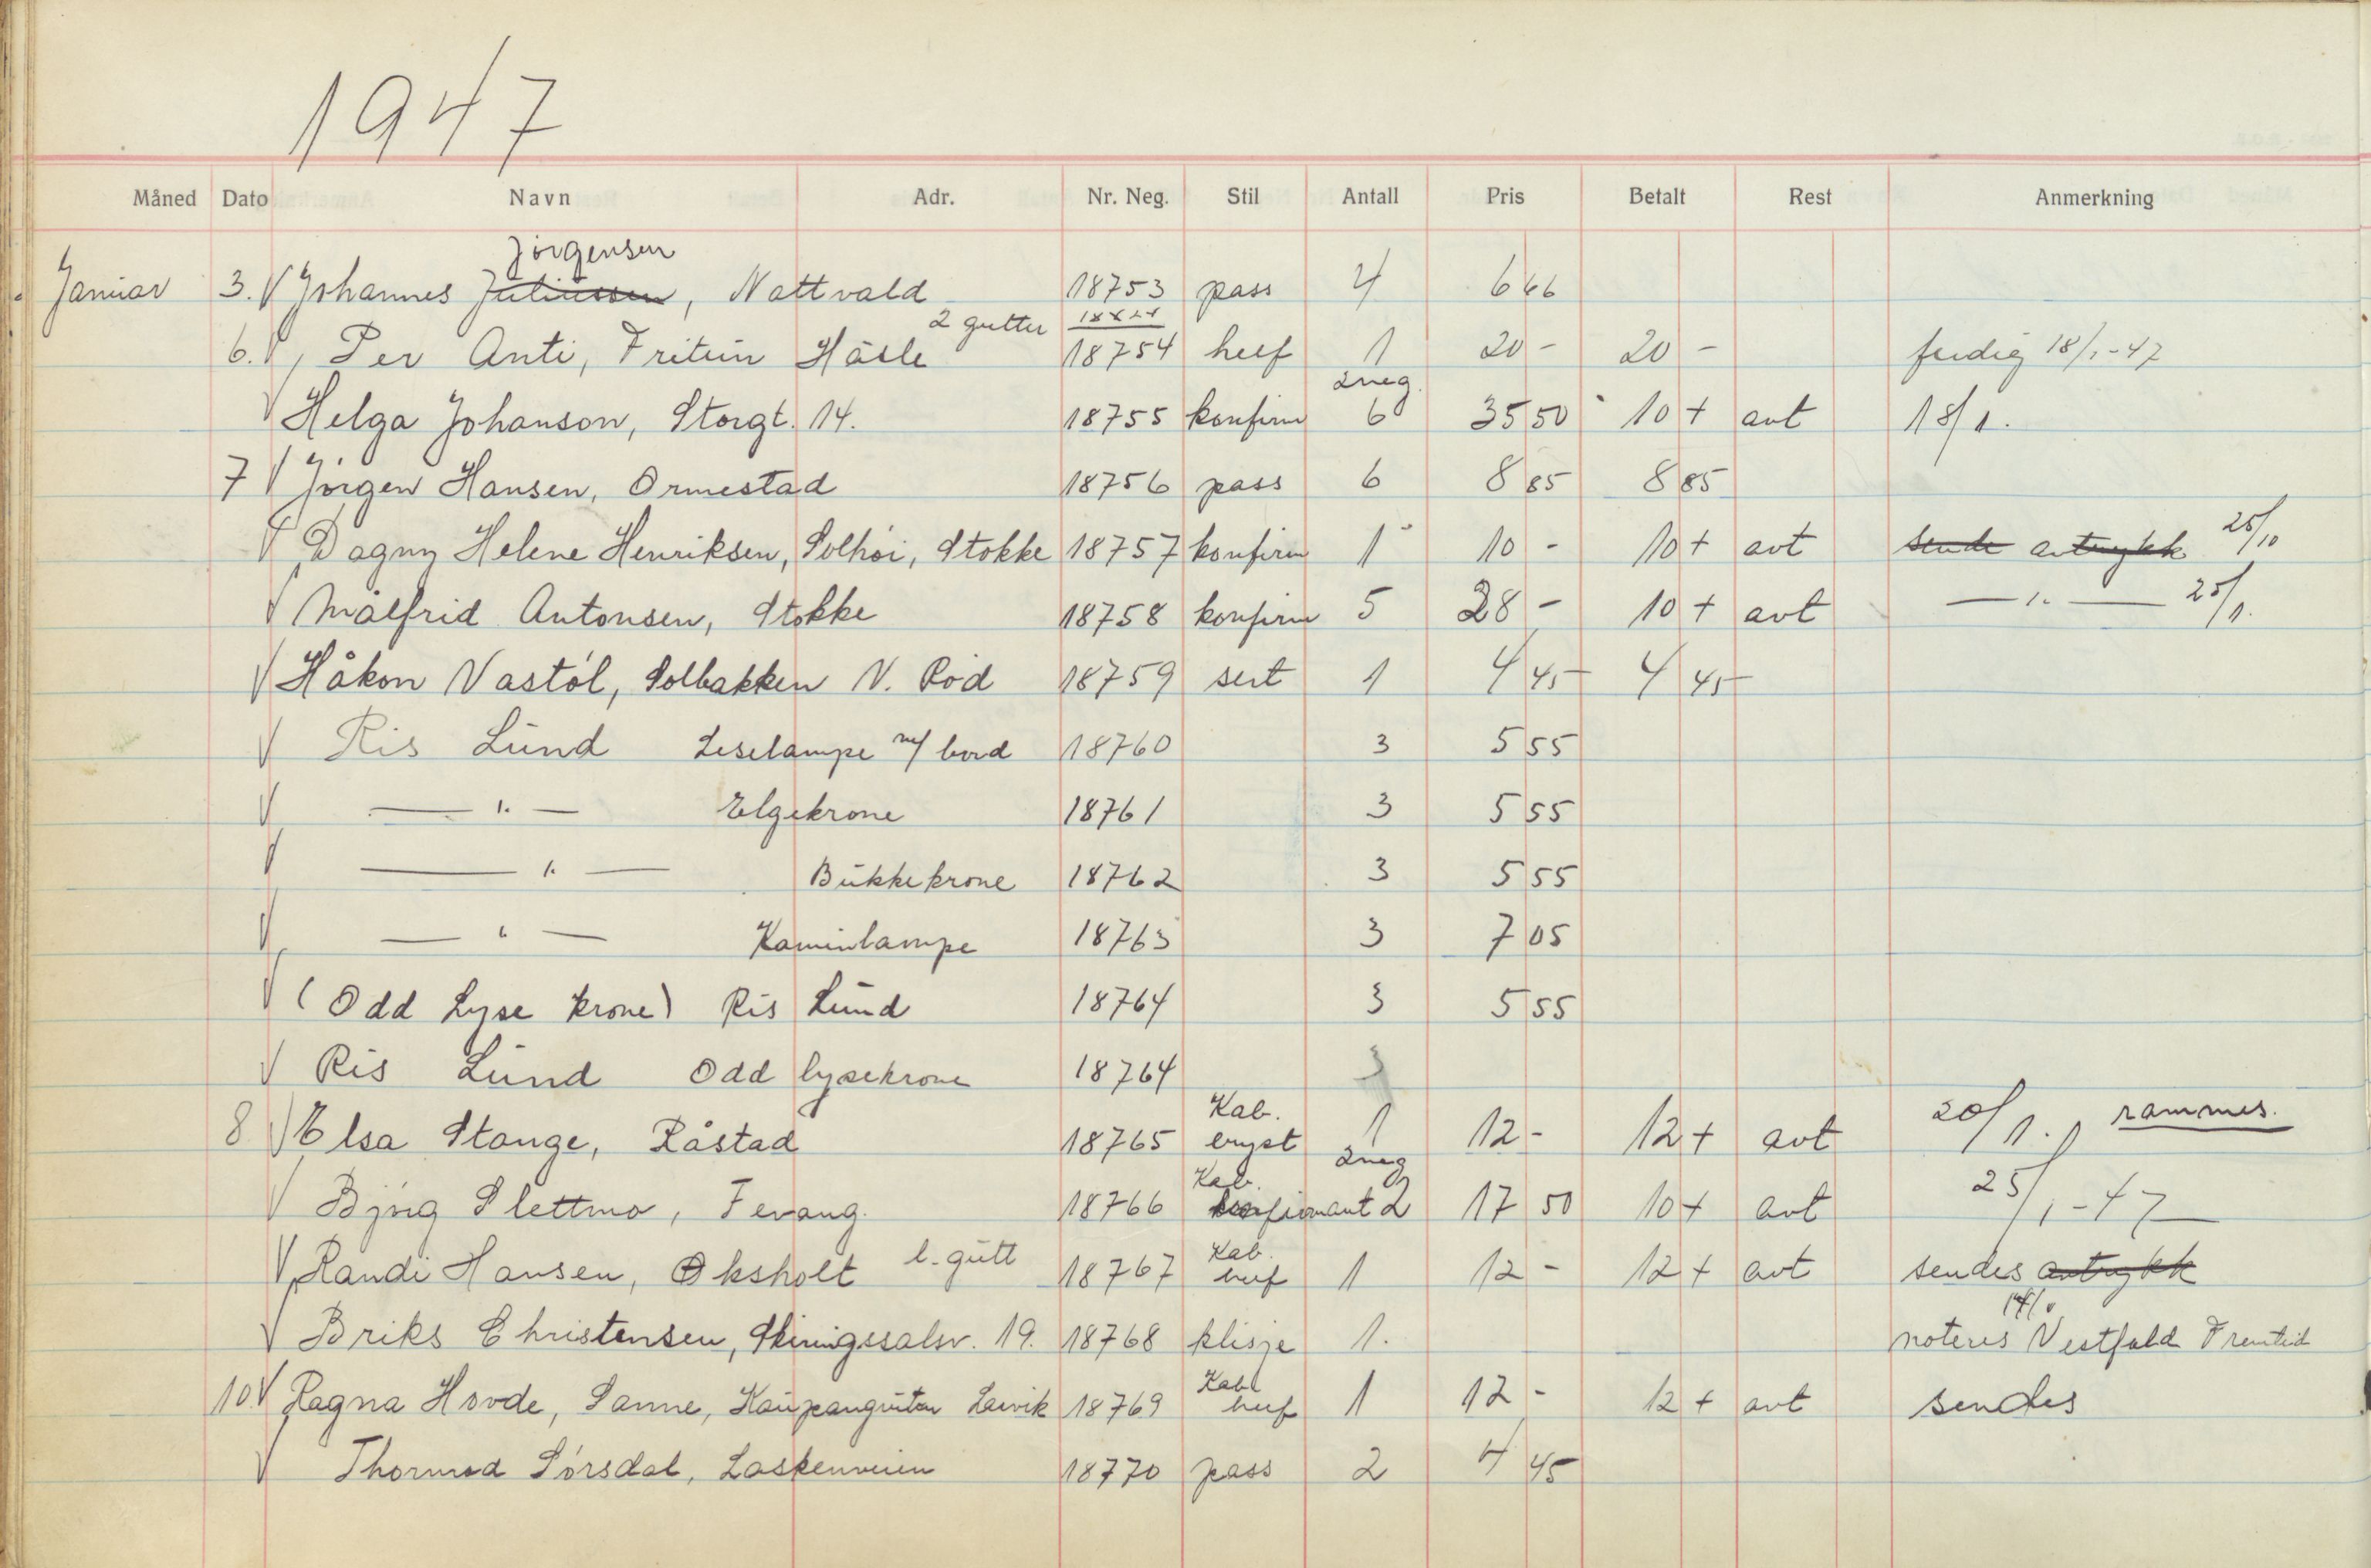 1947
Måned Dato Navn Adr. Nr. Neg. Stil Antall Pris Betalt Rest Anmerkning
Jörgensen
Januar 3. V Johannes Juliussen, Nattvald 18753 pass 4 6 66
2 gutter
6. V Per Anti, Håsle 18754 helf 1 20 - 20 - ferdig 18/1-47
2 neg.
V Helga Johanson, Storgt. 14. 18755 konfirm 6 35 50 10 + avt 18/1.
7 V Jörgen Hansen, Ormestad 18756 pass 6 8 85 8 85
V Dagny Helene Henriksen, Solhöi, Stokke 18757 konfirm 1 10 - 10 + avt sende avtrykk 25/10
V Målfrid Antonsen, Stokke 18758 konfirm 5 28 - 10 + avt — " — 25/1.
V Håkon Vastöl, Solbakken N. Röd 18759 sert 1 4 45 4 45
V Ris Lund Leselampe m/ bord 18760 3 5 55
V — " — Elgekrone 18761 3 5 55
V — " — Bukkekrone 18762 3 5 55
V — " — Kaminlampe 18763 3 7 05
V (Odd Lyse krone) Ris Lund 18764 3 5 55
V Ris Lund Odd lysekrone 18764 3
Kab.
8 V Elsa Stange, Råstad 18765 bryst 1 12 - 12 + avt 20/1. rammes.
Kab. 2 neg
V Björg Slettmo, Fevang. 18766 konfirmant 2 17 50 10 + avt 25/1-47
Kab.
V Randi Hansen, Oksholt l. gutt 18767 helf 1 12 - 12 + avt sendes avtrykk
14/
V Briks Christensen, Skiringssalsv. 19. 18768 klisje 1. noteres Vestfold Fremtid
Kab
10 V Ragna Hovde, Sanne, Larvik 18769 helf 1 12 - 12 + avt sendes
V Thormod Sörsdal, Laskenveien 18770 pass 2 4 45